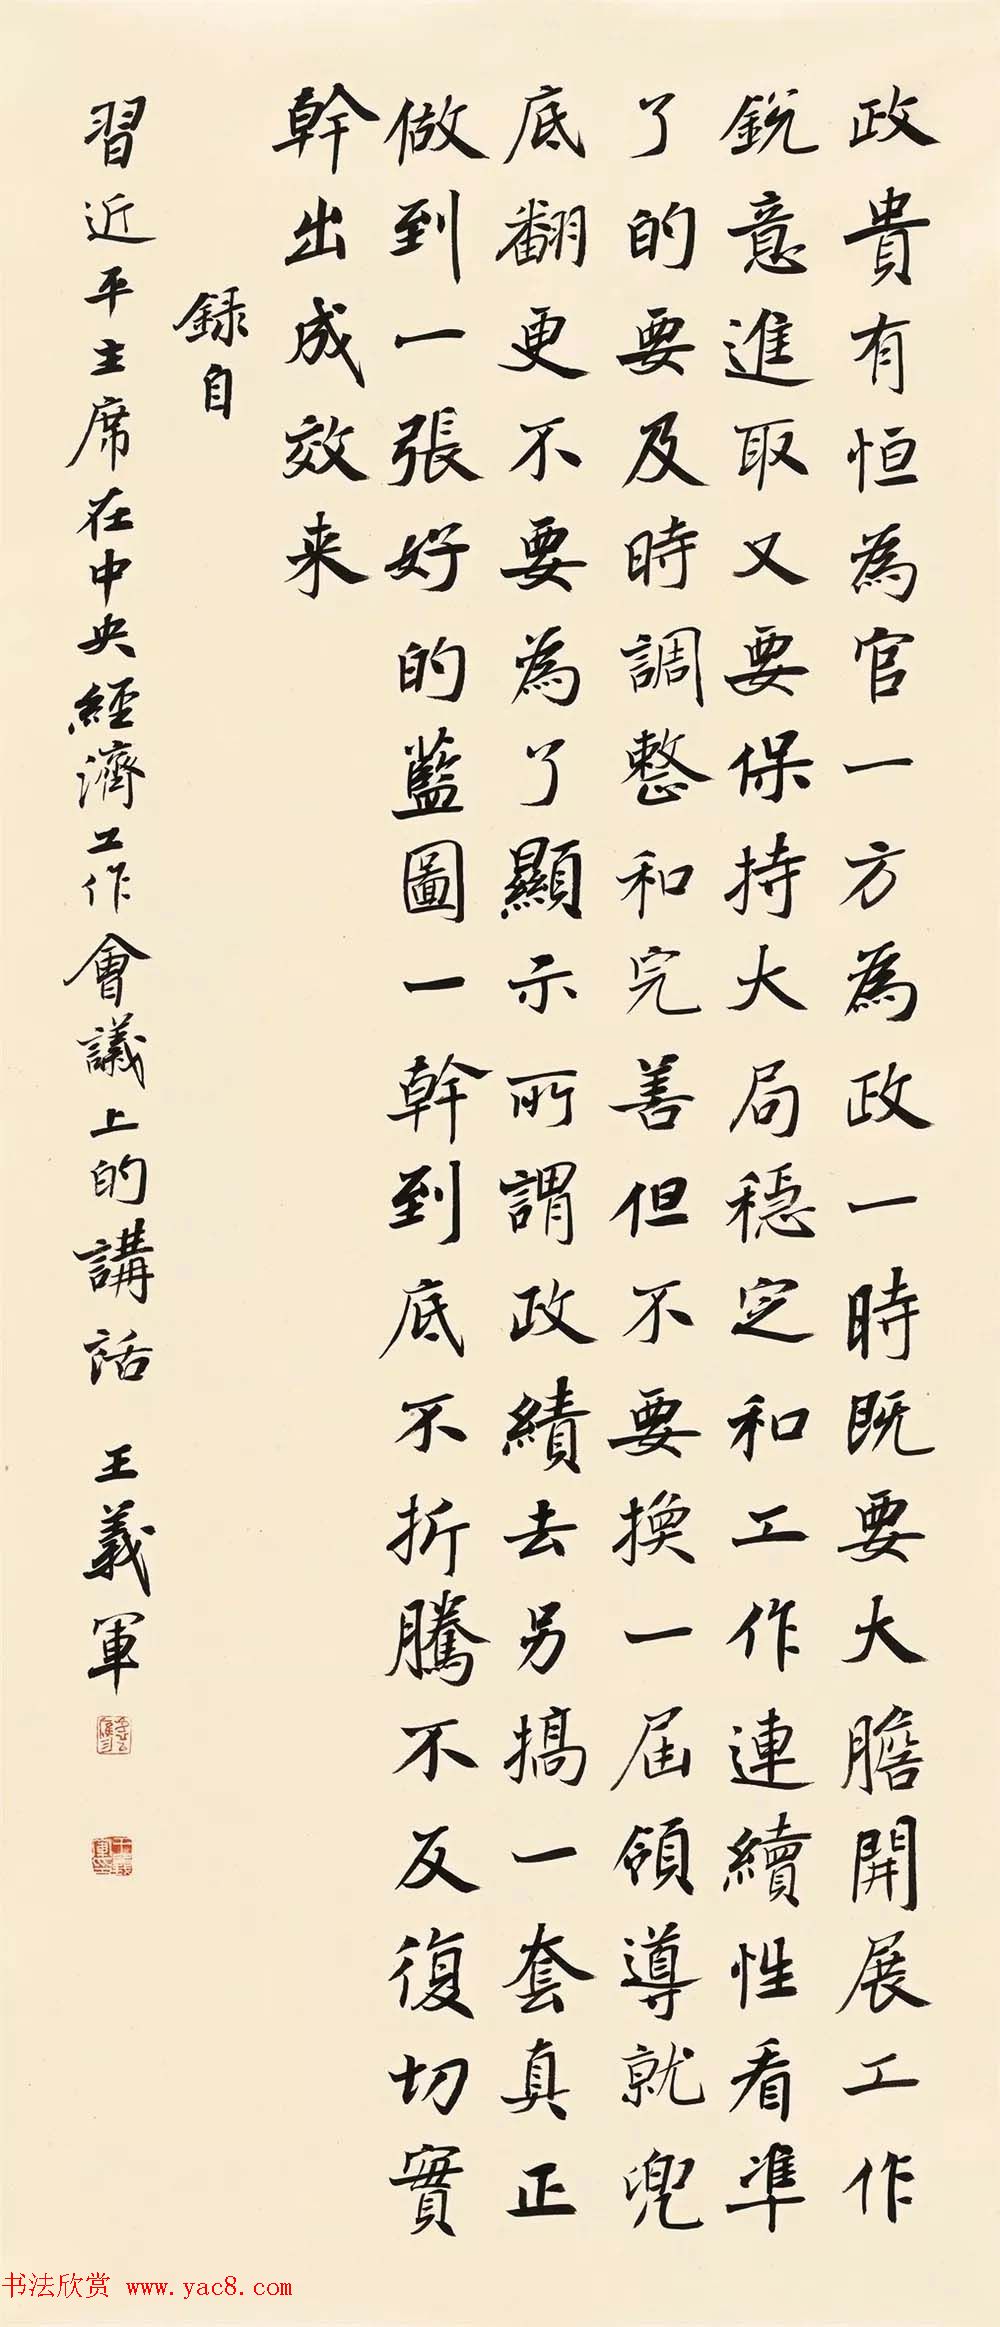 政貴有恒為官一方為政一時既要大膽開展工作
銳意進取又要保持大局穩定和工作連續性看準
了的要及時調整和完善但不要換一屆領導就兜
底翻更不要為了顯示所謂政績去另搞一套真正
做到一張好的藍圖一幹到底不折騰不反復切實
幹出成效来
録自
習近平主席在中央經濟工作會議上的講話 王義軍
王義軍印
书法欣赏 www.yac8.com